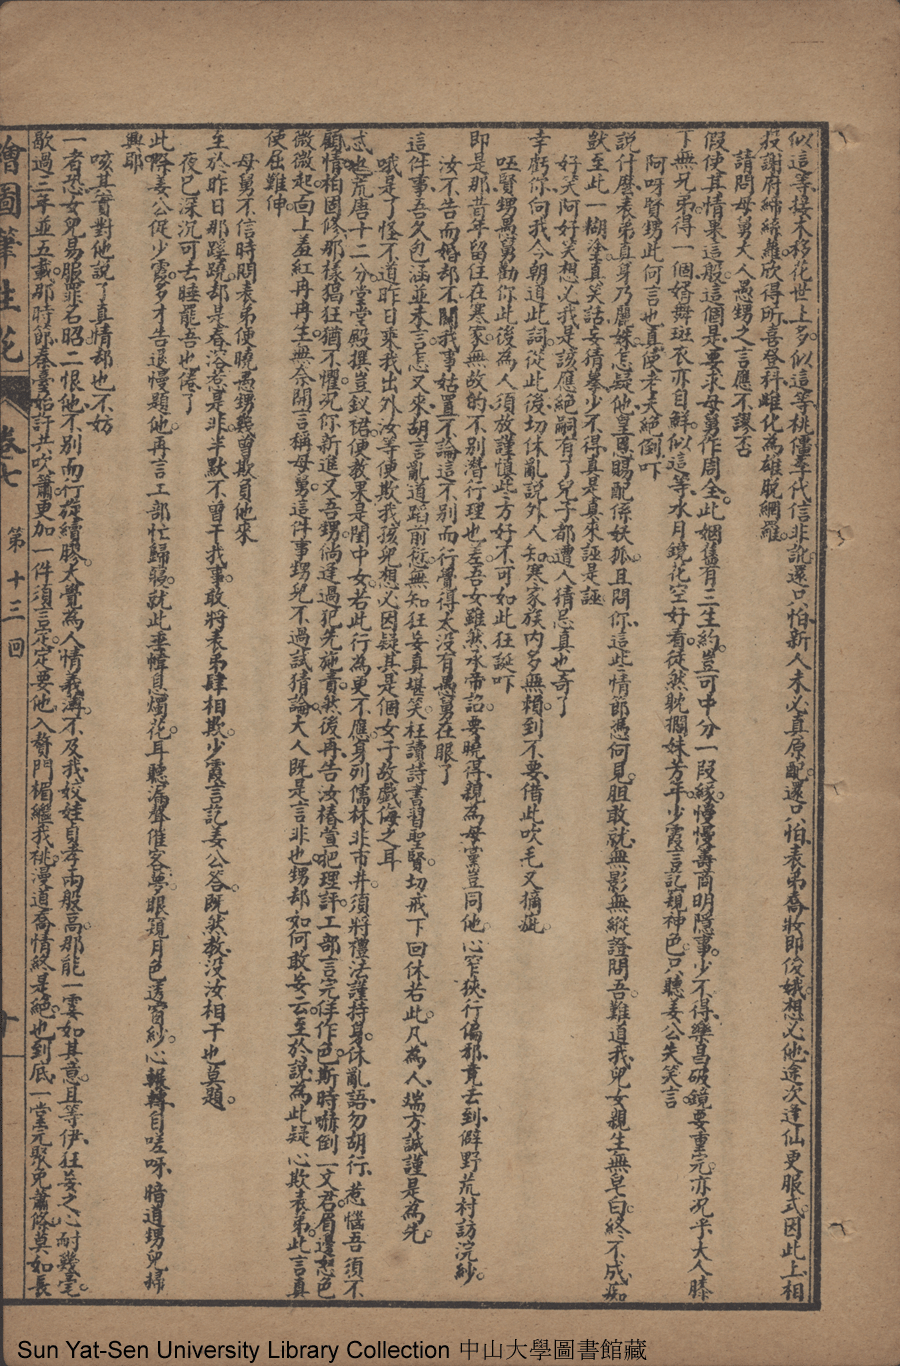 似這等接木移花世上多似這等桃僵李代信非訛還只怕新人未必真原配還只怕表弟喬妝即俊娥想必他途次逢仙更服式因此上相
投謝府締絲蘿欣得所喜登科雌化為雄脫網羅
請問母舅大人愚甥之言應不謬否
假使其情果這般這個是要求母舅作周全此姻雋有三生約豈可中分一段緣慢慢壽商明隱事少不得樂昌破鏡要重完亦況乎大人膝
下無兄弟得一個婿舞斑衣亦自鮮似這等水月鏡花空好看徒然耽擱妹芳年少霞言訖觀神色只聽姜公失笑言
阿呀賢甥此何言也真使老夫絕倒吓
說什麼表弟真身乃麗姝怎疑他皇恩賜配係妖狐且問你這些情節憑何見胆敢就無影無縱證問吾難道我兒女親生無皂白終不成痴
獃至此一糊塗真笑話妄猜摹少不得真是真來誣是誣
好笑阿好笑想必我是該應絕嗣有了兒子都遭人猜忌真也奇了
幸虧你向我今朝道此詞從此後切休亂說外人知寒家族內多無賴到不要借此吹毛又摘疵
呸賢甥愚舅勸你此後為人須放謹慎些方好不可如此狂誕吓
即是那昔年留住在寒家無故的不別潛行理也差吾女雖然承帝詔要曉得親為母黨豈同他心窄狹行偏邪竟去到僻野荒村訪浣紗
汝不告而婚却不關我事姑置不論這不別而行覺得太沒有愚舅在眼了
這件事吾久包涵並未言怎又來胡言亂道蹈前愆無知狂妄真堪笑枉讀詩書習聖賢切戒下回休若此凡為人端方誠謹是為先
哦是了怪不道昨日乘我出外汝等便欺我孩兒想必因疑其是個女子故戲侮之耳
忒也荒唐十二分堂堂殿撰豈釵裙便教果是閨中女若此行為更不應身列儒林非市井須將禮法謹持身休亂語勿胡行惹惱吾須不
顧情柏固修那樣猖狂猶不懼況你新進又吾甥倘逢過犯先施責然後再告汝椿萱把理評工部言完佯作色斯時嚇倒一文君眉邊怒色
微微起面上羞紅冉冉生無奈開言稱母舅這件事甥兒不過試猜論大人既是言非也甥却如何敢妄云至於說為此疑心欺表弟此言真
使屈難伸
母舅不信時問表弟便曉愚甥幾曾欺負他來
至於昨日那蹊蹺却是春溶惹是非半默不曾干我事敢將表弟肆相欺少霞言訖姜公答既然教沒汝相干也莫題
夜已深沉可去睡罷吾也倦了
此際姜公促少霞多才告退慢題他再言工部忙歸寢就此垂幃息燭花耳聽漏聲催客夢眼窺月色透窗紗心輾轉自嗟呀暗道甥兒掃
興耶
咳其實對他說了真情却也不妨
一者恐女兒易服罪名昭二恨他不別而行在續膠太覺為人情義薄不及我姣娃貞孝兩般高那能一霎如其意且等伊狂妄之心耐幾宵
歇過三年並五載那時節秦臺始許共吹簫更加一件須言定定要他入贅門楣繼我祧漫道喬情終是絕也到底一堂完聚免蕭條莫如長
繪圖筆生花 卷七 第十三回 十
Sun Yat-Sen University Library Collection 中山大學圖書館藏